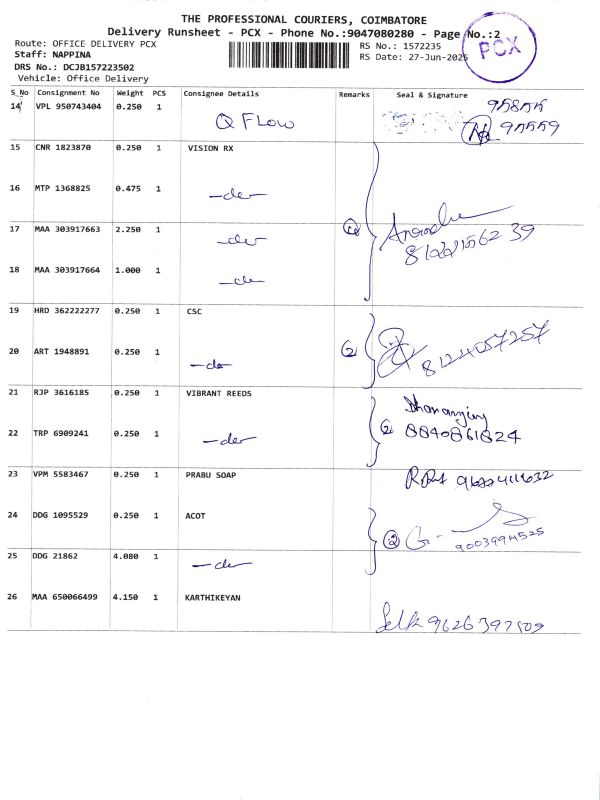 THE PROFESSIONAL COURIERS, COIMBATORE
Delivery Runsheet - PCX - Phone No.:9047080280 - Page No.:2
Route: OFFICE DELIVERY PCX
Staff: NAPPINA
DRS No.: DCJB157223502
Vehicle: Office Delivery
RS No.: 1572235
RS Date: 27-Jun-2025
PCX
S_No Consignment No Weight PCS Consignee Details Remarks Seal & Signature
14 VPL 950743404 0.250 1 Q FLOW
15 CNR 1823870 0.250 1 VISION RX
16 MTP 1368825 0.475 1 -do-
17 MAA 303917663 2.250 1 -do-
18 MAA 303917664 1.000 1 -do-
19 HRD 362222277 0.250 1 CSC
20 ART 1948891 0.250 1 -do- 2 8124057257
21 RJP 3616185 0.250 1 VIBRANT REEDS
22 TRP 6909241 0.250 1 -do- 2 8840861824
23 VPM 5583467 0.250 1 PRABU SOAP
24 DDG 1095529 0.250 1 ACOT 2
25 DDG 21862 4.080 1 -do-
26 MAA 650066499 4.150 1 KARTHIKEYAN
9626397509